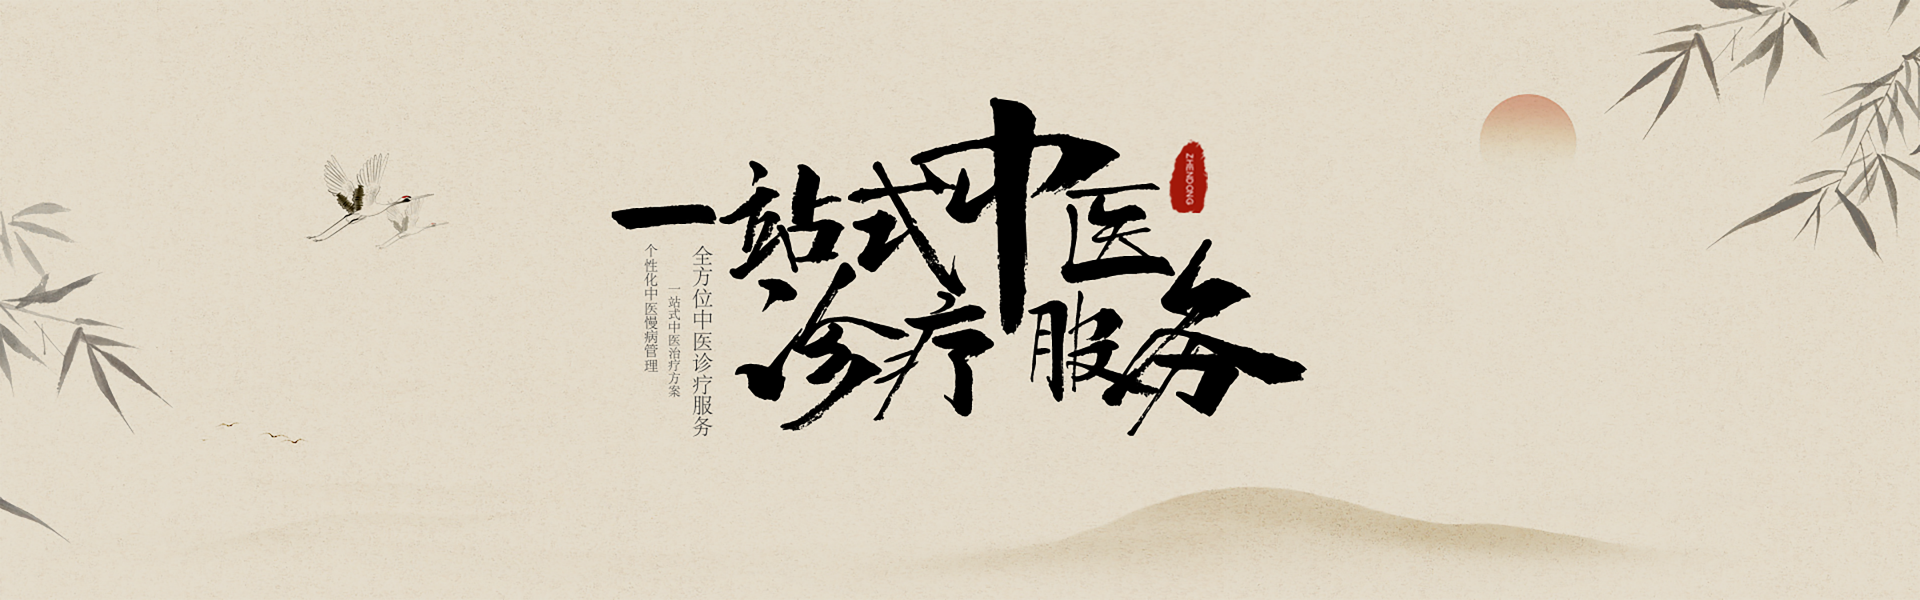 一站式中医
诊疗服务
ZHENDONG
全方位中医诊疗服务
一站式中医治疗方案
个性化中医慢病管理